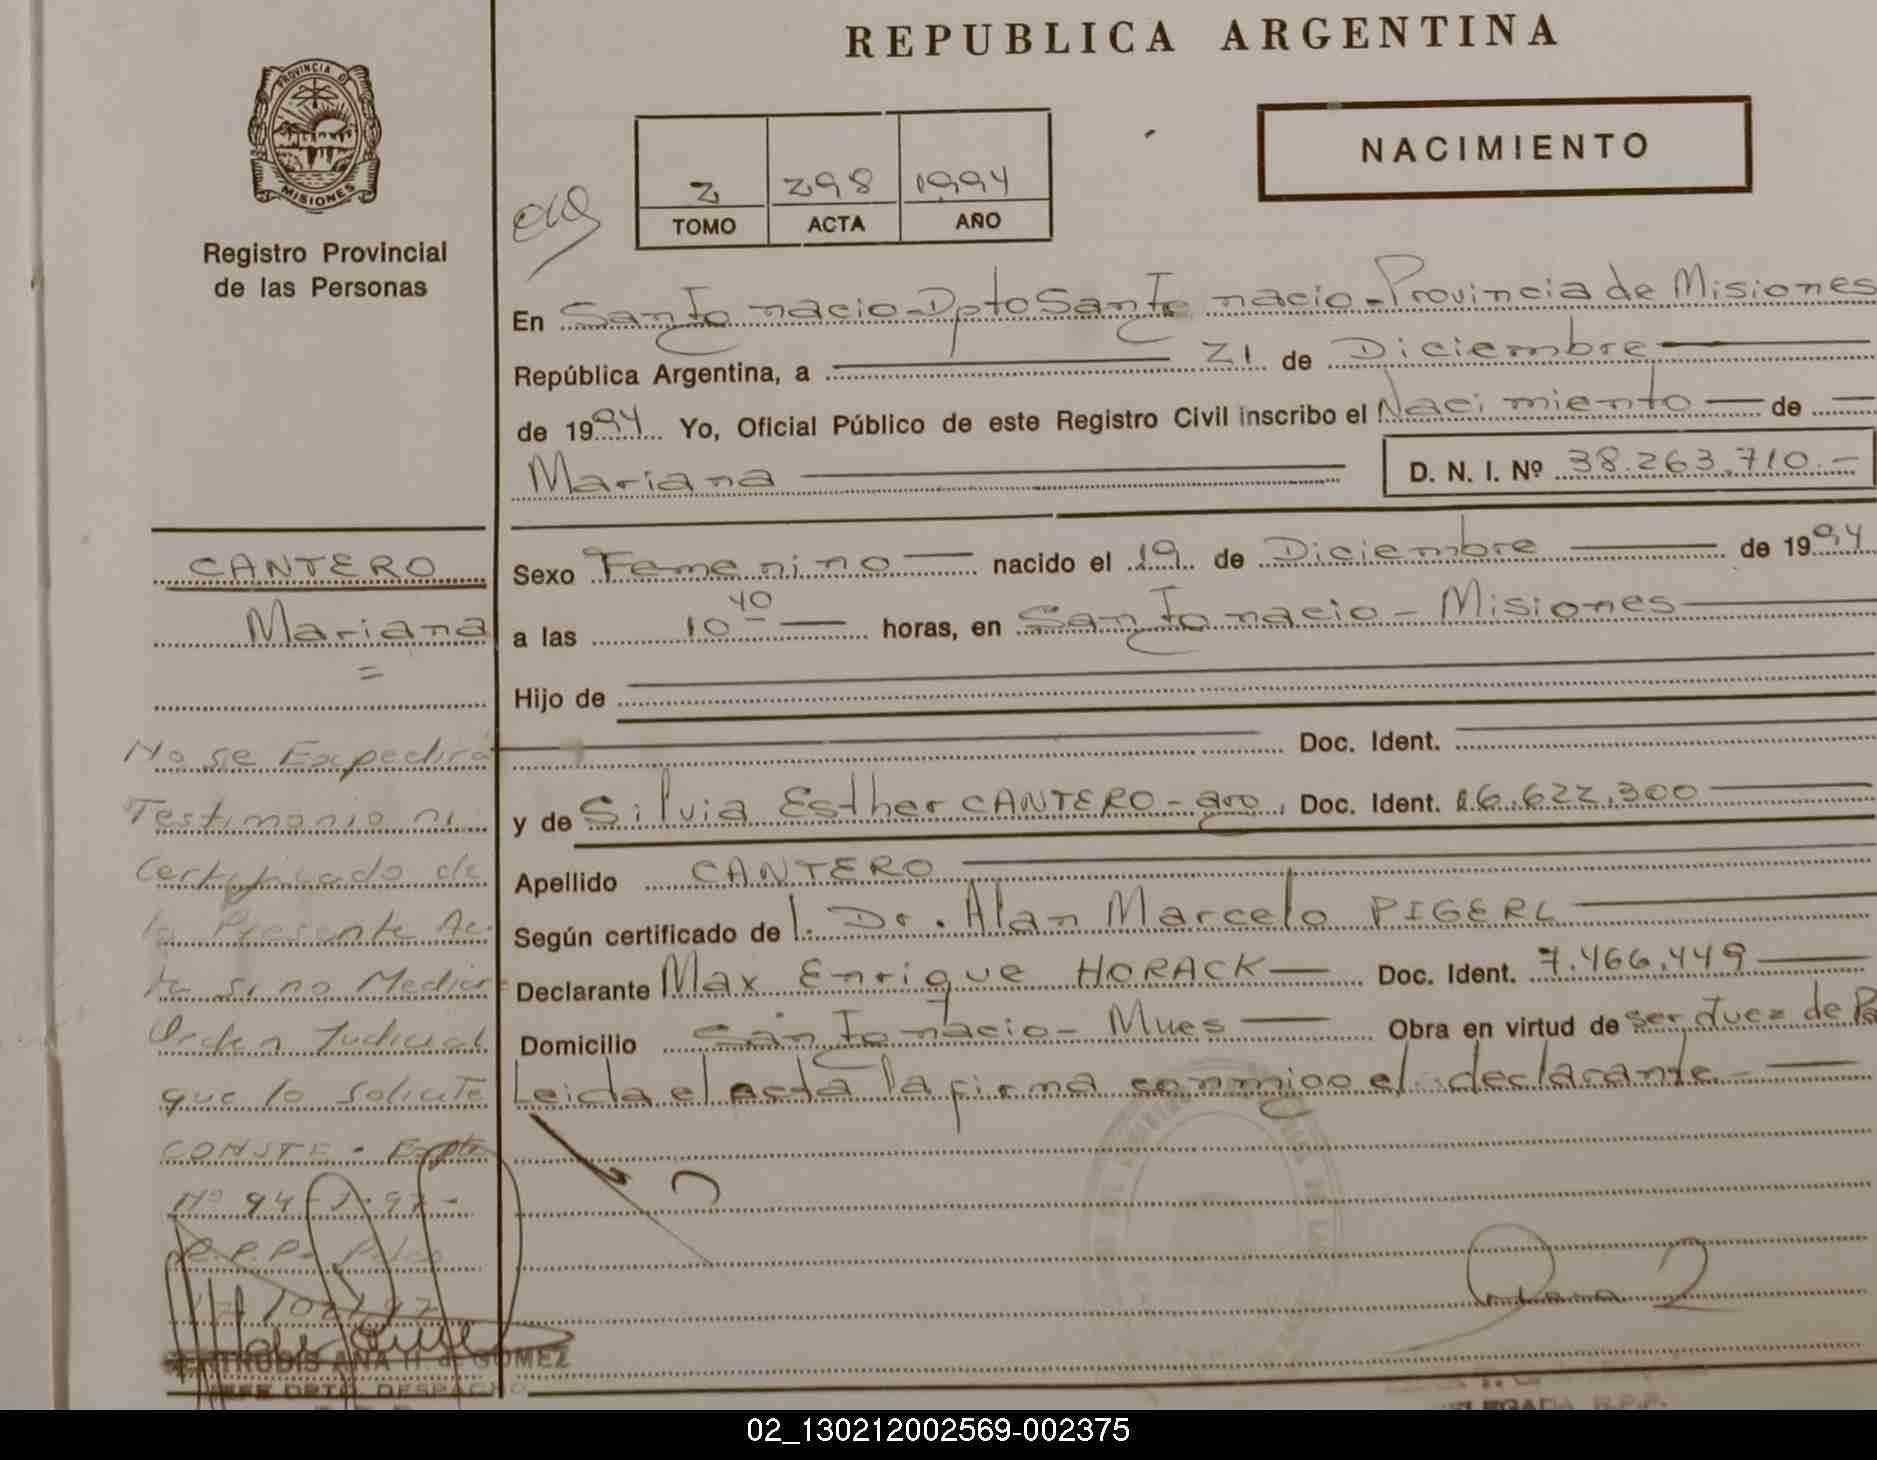 REPUBLICA ARGENTINA
PROVINCIA D
MISIONES
Registro Provincial
de las Personas
NACIMIENTO
2 298 1994
TOMO ACTA AÑO
En San Ignacio - Dpto San Ignacio - Provincia de Misiones
República Argentina, a 21 de Diciembre
de 1994 Yo, Oficial Público de este Registro Civil inscribo el Nacimiento de
Mariana
D. N. I. Nº 38.263.710.-
CANTERO
Mariana
Sexo Femenino nacido el 19 de Diciembre de 1994
a las 10 40 horas, en San Ignacio - Misiones
Hijo de
Doc. Ident.
y de Silvia Esther CANTERO - arg. Doc. Ident. 16.622.300
Apellido CANTERO
Según certificado de l. Dr. Alan Marcelo PIGERL
Declarante Max Enrique HORACK Doc. Ident. 7.466.449
Domicilio San Ignacio - Mnes Obra en virtud de ser Juez de Pa
Leida el acta la firma conmigo el declarante
No se Expedirá
Testimonio ni
Certificado de
la Presente Ac-
ta si no Media
Orden Judicial
que lo solicite
CONSTE - Expte
Nº 94-J-97-
R.P.P. Pdas
GERTRUDIS ANA H. de GOMEZ
JEFE DPTO. DESPACHO
DELEGADA R.P.P.
02_130212002569-002375